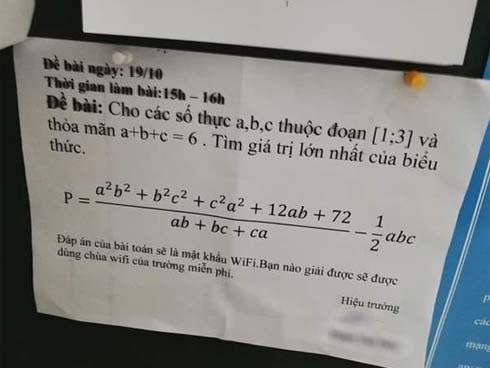 Đề bài ngày: 19/10
Thời gian làm bài:15h – 16h
Đề bài: Cho các số thực a,b,c thuộc đoạn [1;3] và
thỏa mãn a+b+c = 6 . Tìm giá trị lớn nhất của biểu
thức.
P = (a²b² + b²c² + c²a² + 12ab + 72)/(ab + bc + ca) − 1/2 abc
Đáp án của bài toán sẽ là mật khẩu WiFi.Bạn nào giải được sẽ được
dùng chùa wifi của trường miễn phí.
Hiệu trưởng